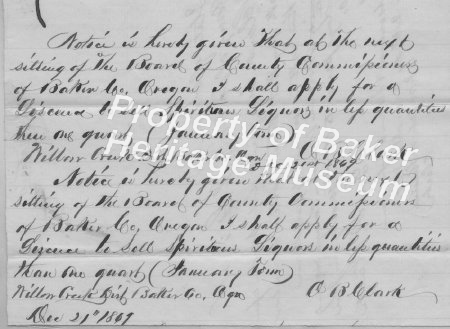 Notice is hereby given that at the next
sitting of the Board of County Commissioners
of Baker Co, Oregon I shall apply for a
Licence to sell Spiritous Liquors in less quantities
than one quart (January Term)
Willow Creek
Notice is hereby given that at the next
sitting of the Board of County Commissioners
of Baker Co, Oregon I shall apply for a
Licence to Sell Spiritous Liquors in less quantities
than one quart (January Term)
Willow Creek Dist Baker Co, Ogn O B Clark
Dec 21st 1869
Property of Baker
Heritage Museum